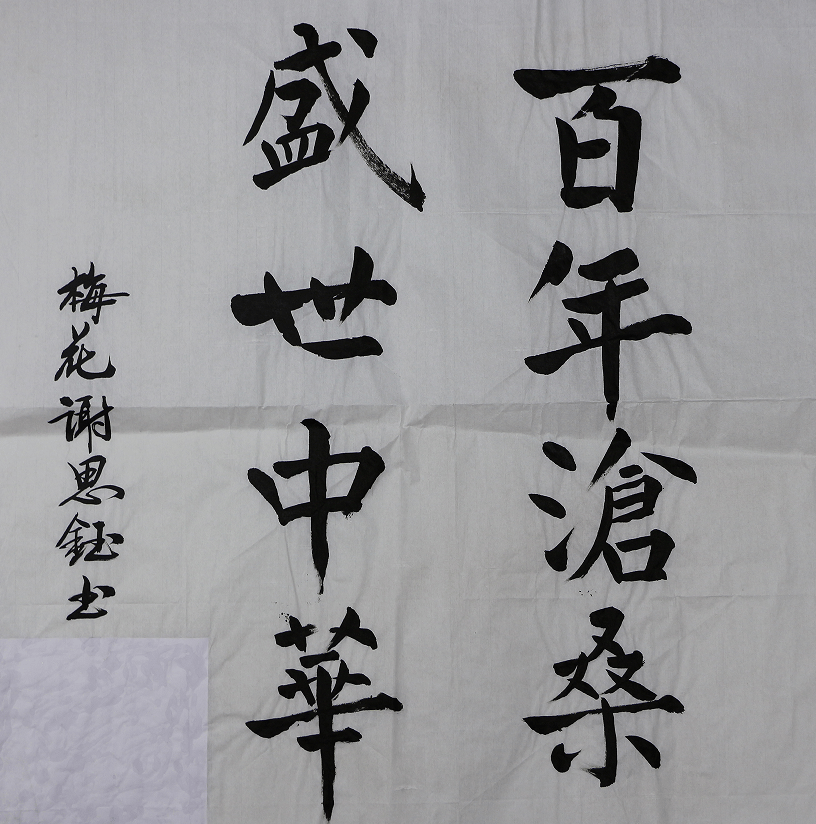 百年滄桑
盛世中華
梅花谢思鈺书